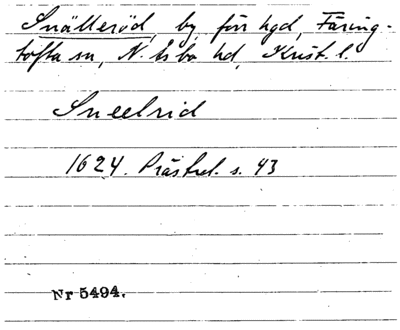 Snälleröd, by, förr hgd, Färing-
tofta sn, N. Åsbo hd, Krist. l.
Sneelrid
1624. Prästrel. s. 43
Nr 5494.